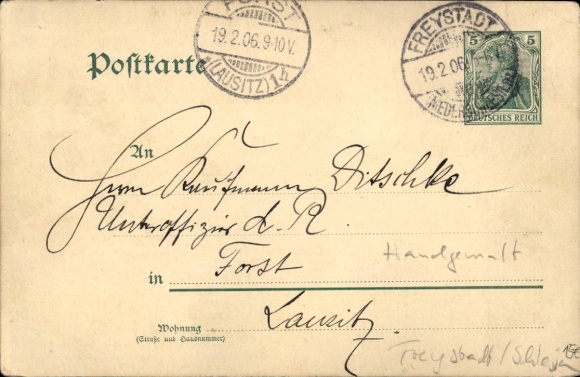 FORST
19.2.06.9-10V.
(LAUSITZ) 1h
FREYSTADT
19.2.06
5 5
DEUTSCHES REICH
Postkarte
An
Herrn Kaufmann Ditschke
Unteroffizier d. R.
Handgemalt
in Forst
Lausitz
Wohnung
(Straße und Hausnummer)
Freystadt / Schlesien